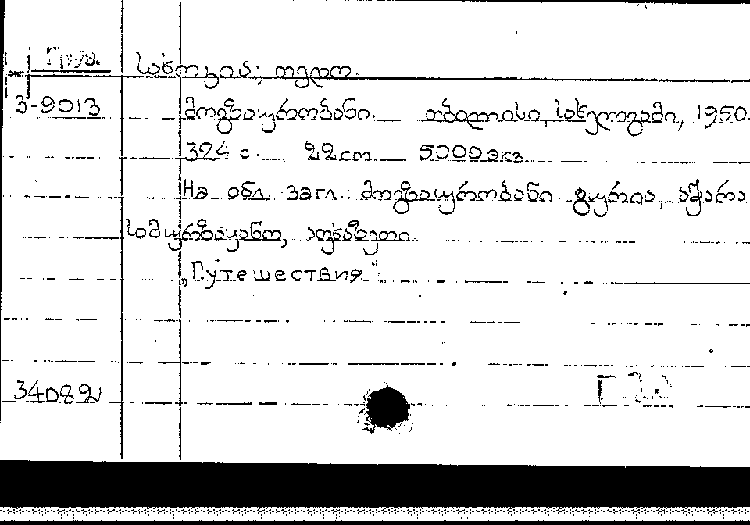 Груз.
სახოკია, თედო.
3-9013
მოგზაურობანი. თბილისი, სახელგამი, 1950.
324 с. 22 см 5000 экз
На обл. загл. მოგზაურობანი გურია, აჭარა
სამურზაყანო, აფხაზეთი.
„Путешествия".
34082